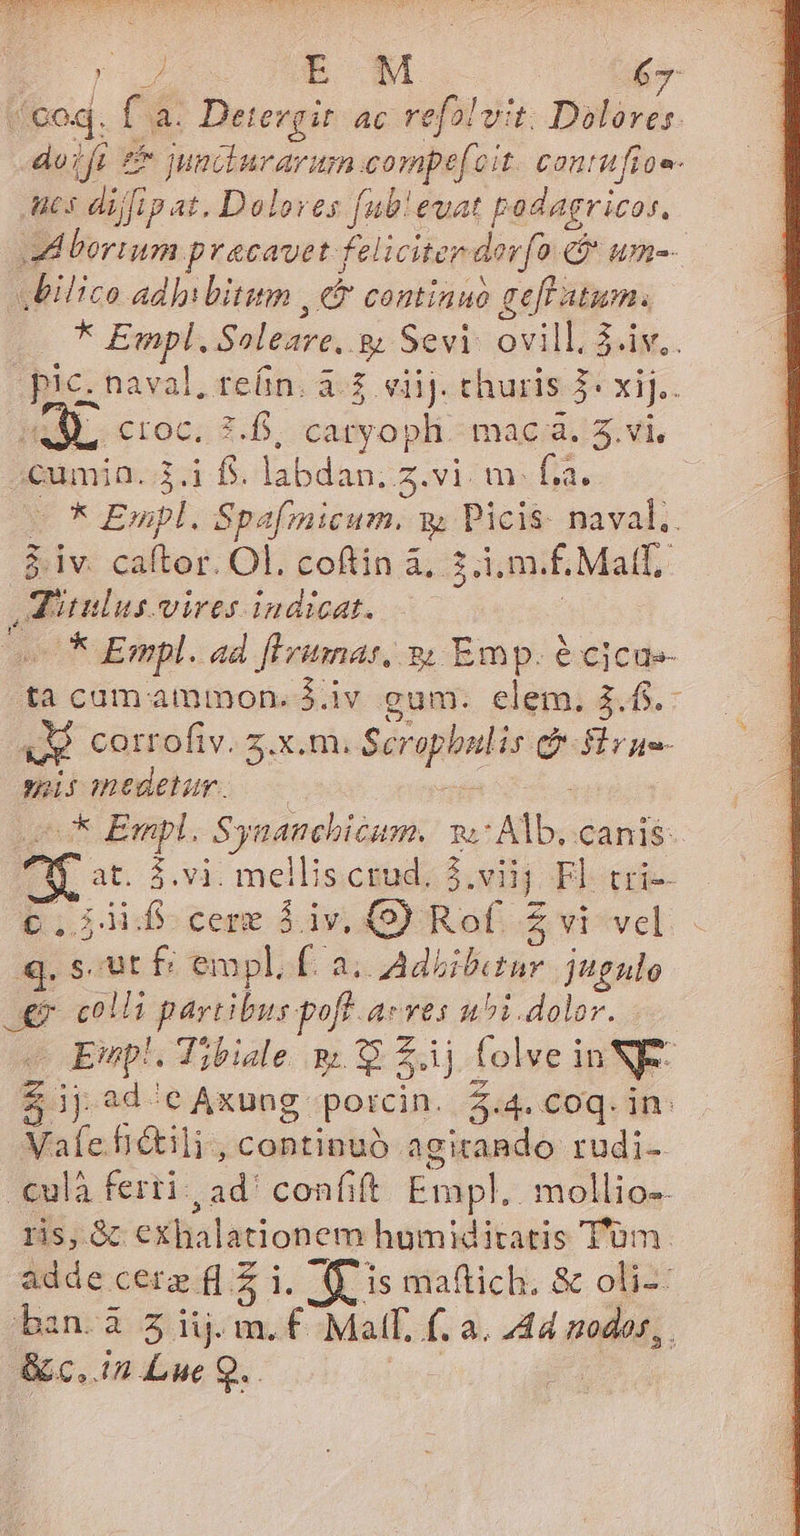 E M 67
coq. ſ a. Detergit ac reſolvit. Dolores
dorſi & juncturarum compeſcit. contuſio-
nes diſſipat. Dolores ſublevat podagricos,
Abortum præcavet feliciter dorſo & um-
bilico adhibitum, & continuò geſtatum.
* Empl. Soleare. ℞ Sevi ovill. ℥.iv.
pic. naval. reſin. ā ℥ viij. thuris ℥. xij.
croc. ʒ.ß, caryoph mac ā. ʒ.vi.
cumin. ℥.i ß. labdan. ʒ.vi m. ſ.a.
* Empl. Spaſmicum. ℞ Picis naval.
℥.iv. caſtor. Ol. coſtin ā. ʒ.i.m.f. Maſſ.
Titulus vires indicat.
* Empl. ad ſtrumas, ℞ Emp. è cicu-
ta cum ammon. ℥.iv gum. elem. ℥.ß.
☿ corroſiv. ʒ.x.m. Scrophulis & ſtru-
mis medetur.
* Empl. Synanchicum. ℞ Alb. canis
at. ℥.vi. mellis crud. ℥.viij Fl tri-
c. ℥.ii.ß ceræ ℥ iv. Roſ ℥ vi vel
q. s. ut fi empl. ſ. a. Adhibetur jugulo
& colli partibus poſt aures ubi dolor.
Empl. Tibiale ℞ ☿ ℥.ij ſolve in
℥ ij. ad e Axung porcin. ℥.4. coq. in
Vaſe fictili, continuò agitando rudi-
culâ ferri, ad conſiſt Empl. mollio-
ris, & exhalationem humiditatis Tùm
adde ceræ fl ℥ i. is maſtich. & oli-
ban. ā ʒ iij. m. f Maſſ, ſ. a. Ad nodos,
&c. in Lue ♀.